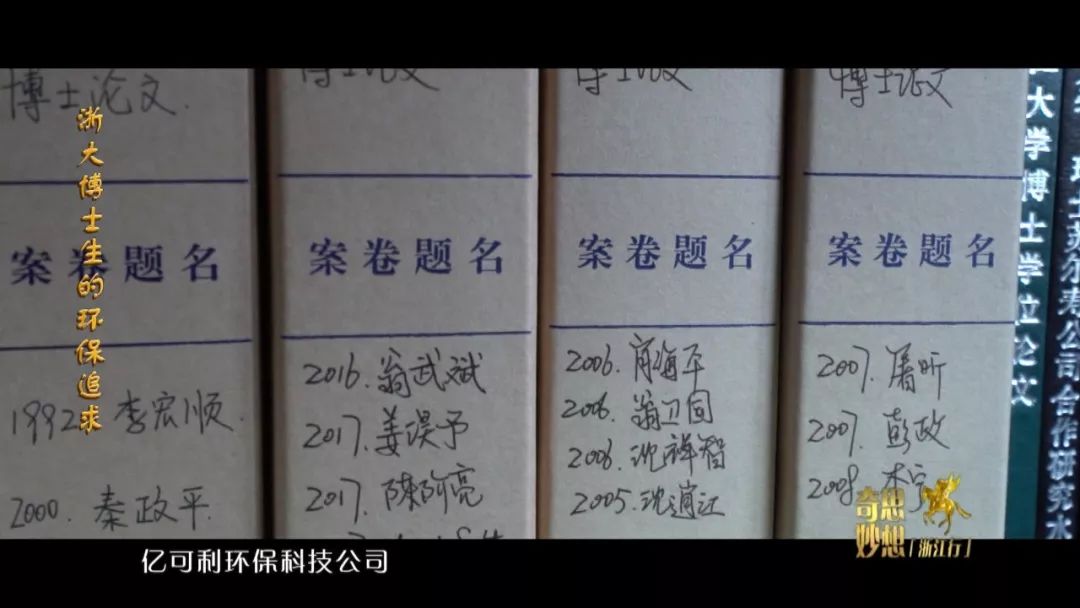 浙大博士生的环保追求
博士论文
案卷题名
1992 李宏顺
2000. 秦政平
博士论文
案卷题名
2016. 翁武斌
2017. 姜淏予
2017. 陳阿亮
博士论文
案卷题名
2006.
2006. 翁卫国
2006. 沈祥智
2005. 沈逍江
博士论文
案卷题名
2007. 屠昕
2007. 彭政
2008.
大学博士学位论文
公司合作研究
奇思
妙想
「浙江行」
亿可利环保科技公司